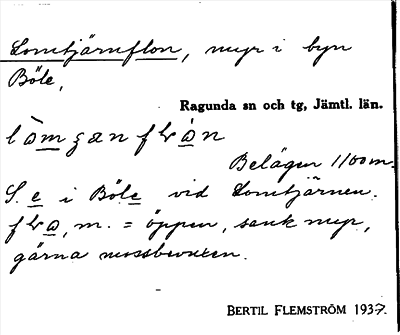 Lomtjärnflon, myr i byn
Böle,
Ragunda sn och tg, Jämtl. län.
Belägen 1100 m.
S. e i Böle vid Lomtjärnen.
m. = öppen, sank myr,
gärna mossbevuxen.
BERTIL FLEMSTRÖM 1937.